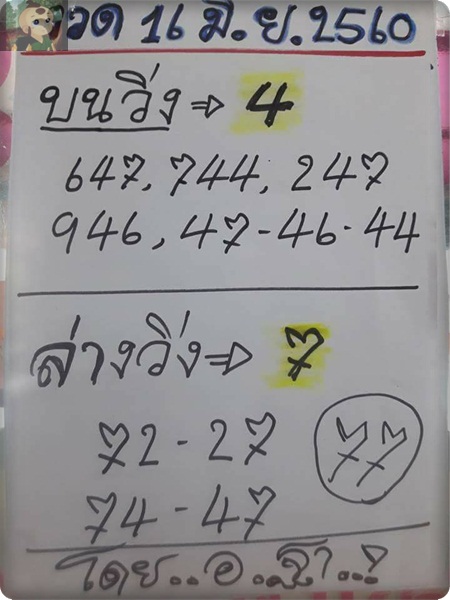 งวด 16 มิ.ย.2560
บนวิ่ง⇒ 4
647, 744, 247
946, 47-46-44
ล่างวิ่ง⇒ 7
72-27
77
74-47
โดย..อ.ฐา..!